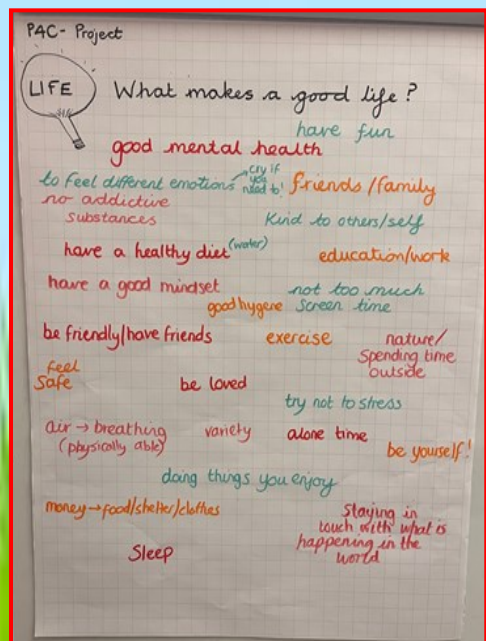 P4C- Project
LIFE What makes a good life?
have fun
good mental health
to feel different emotions → cry if you need to!
friends/family
no addictive
substances
kind to others/self
have a healthy diet (water)
education/work
have a good mindset
not too much
screen time
good hygene
be friendly/have friends
exercise
nature/
spending time
outside
feel
safe
be loved
try not to stress
air → breathing
(physically able)
variety
alone time
be yourself!
doing things you enjoy
money → food/shelter/clothes
Staying in
touch with what is
happening in the
world
Sleep